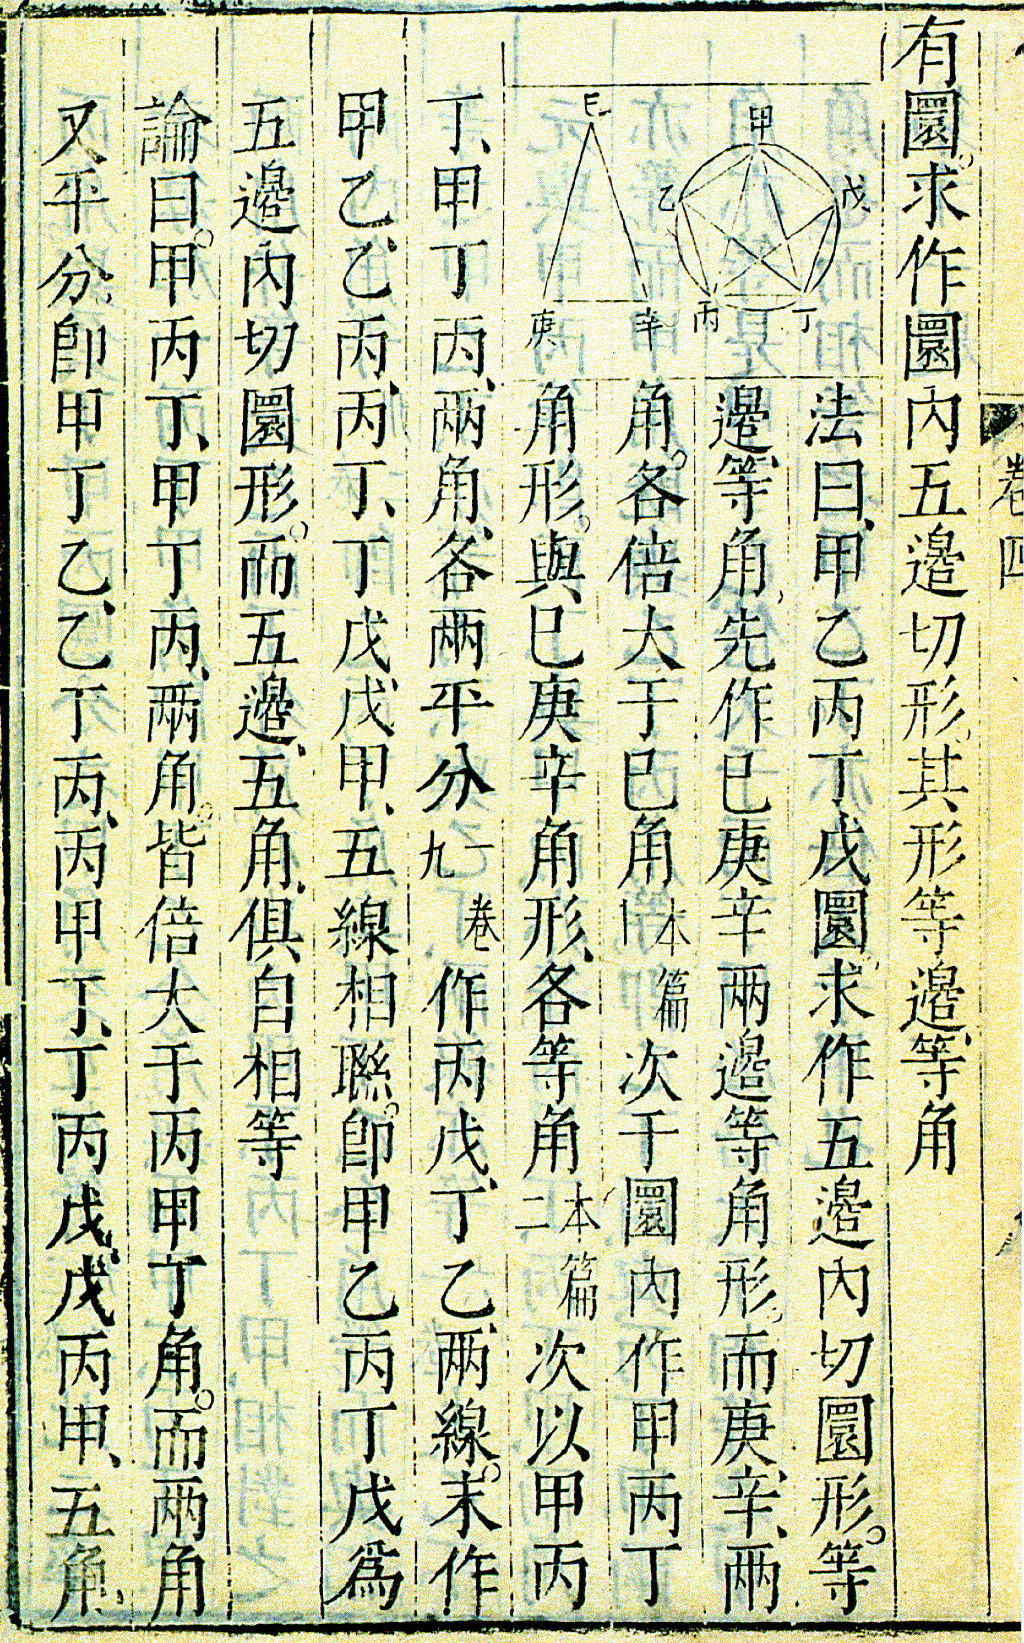 卷四
有圜。求作圜內五邊切形。其形等邊、等角
甲
乙
戊
丙
丁
巳
庚
辛
法曰、甲乙丙丁戊圜。求作五邊內切圜形。等
邊、等角、先作巳庚辛兩邊等角形。而庚、辛、兩
角。各倍大于巳角本篇十次于圜內作甲丙丁
角形。與巳庚辛角形、各等角本篇二次以甲丙
丁、甲丁丙、兩角、各兩平分一卷九作丙戊、丁乙、兩線。末作
甲乙、乙丙、丙丁、丁戊、戊甲、五線相聯。卽甲乙丙丁戊爲
五邊內切圜形。而五邊、五角、俱自相等
論曰。甲丙丁、甲丁丙、兩角。皆倍大于丙甲丁角。而兩角
又平分、卽甲丁乙、乙丁丙、丙甲丁、丁丙戊、戊丙甲、五角、